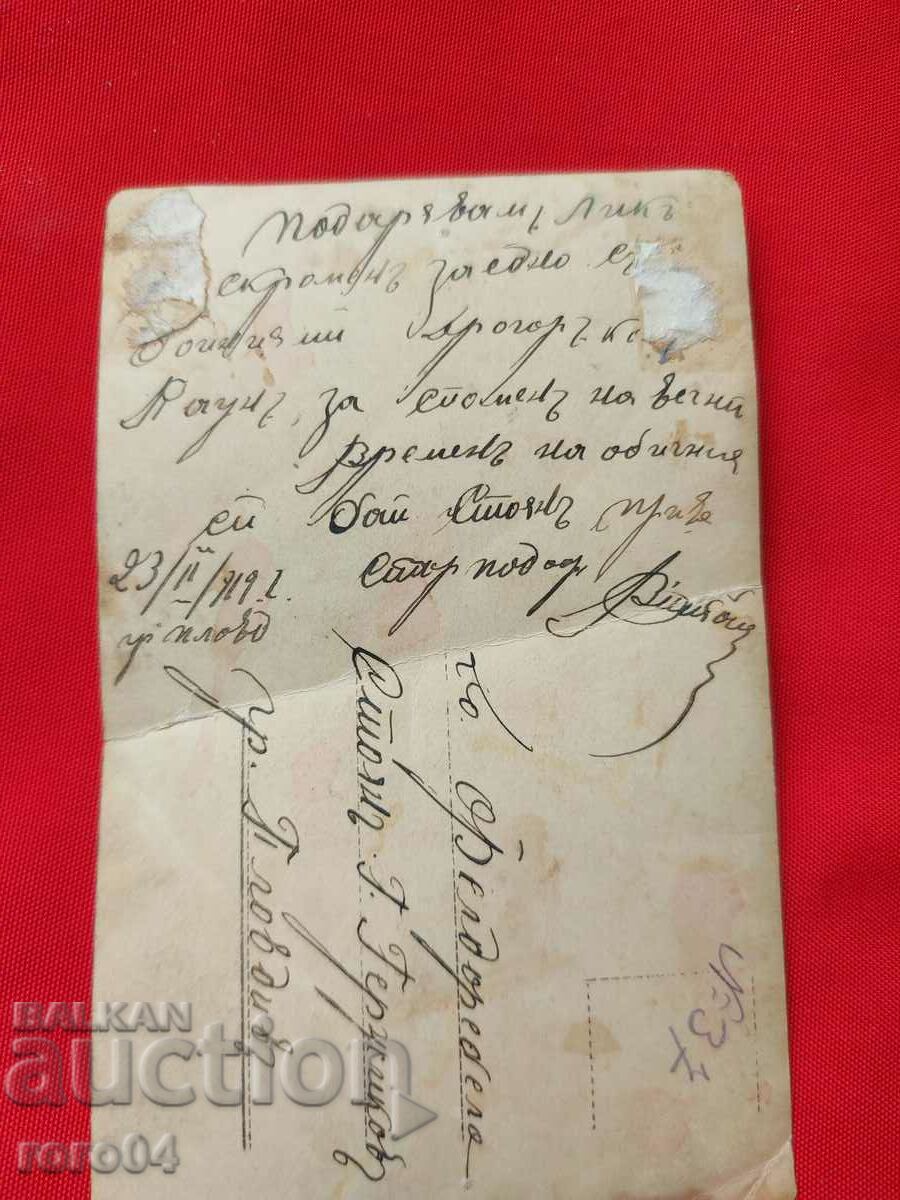 Подарявамъ Ликъ
скроменъ заедно съ
Каунъ, за споменъ на вечни
Времень на обичния
си бай Стоянъ
23/II/919 г.
гр. пловд
Стар подоф
Го. Фелдфебела
Стоянъ Г. Герджиковъ
гр. Пловдивъ
№37
BALKAN
auction
roro04